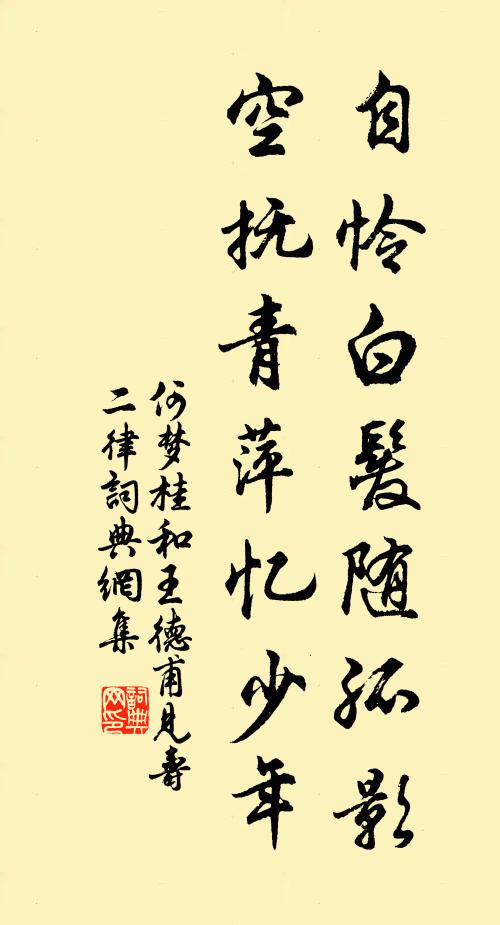 自怜白髮随孤影
空抚青萍忆少年
何梦桂和王德甫见寿
二律詞典網集
詞典
网印